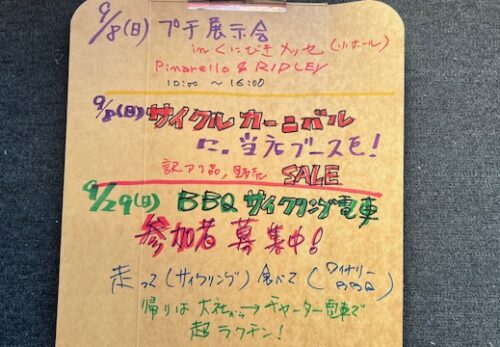 9/8(日) プチ展示会
in くにびきメッセ (小ホール)
Pinarello & RIDLEY
10:00 ～ 16:00
9/8(日) サイクルカーニバル
に、当店ブースを!
訳アリ品、販売 SALE
9/29(日) BBQ サイクリング電車
参加者募集中!
走って(サイクリング)食べて(ワイナリーBBQ)
帰りは大社から→チャーター電車で
超ラクチン!